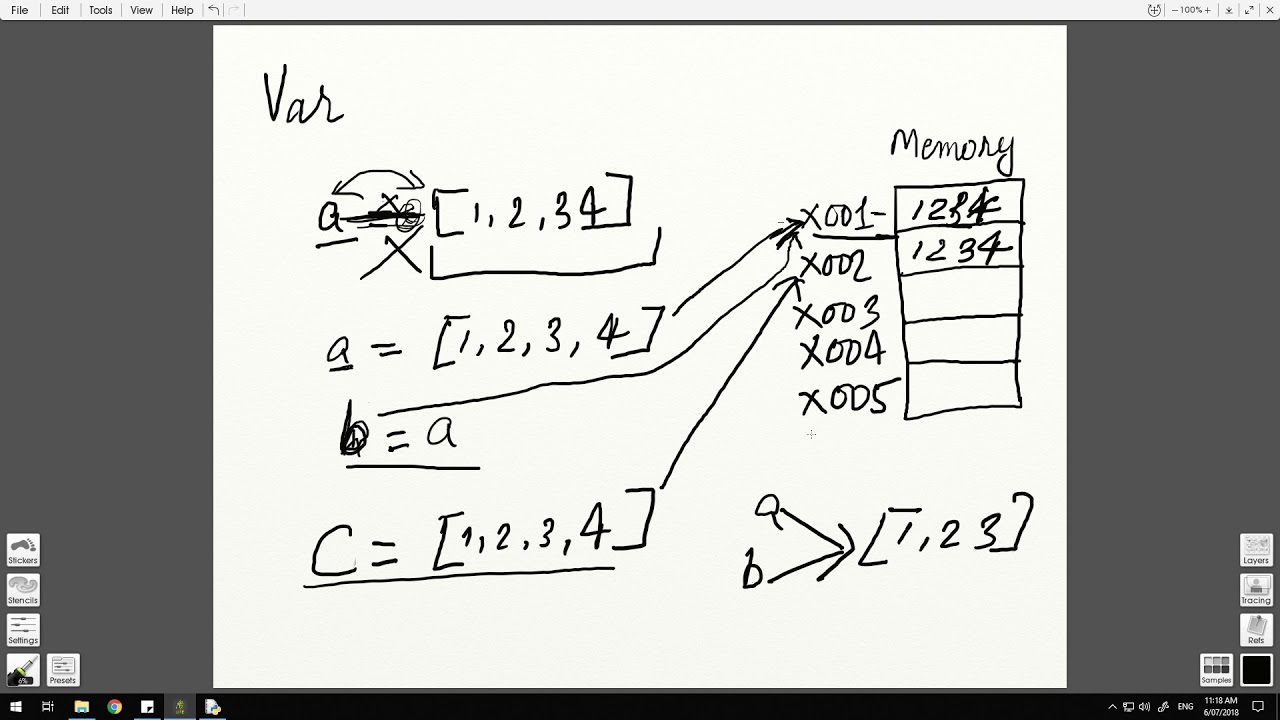 File Edit Tools View Help
100%
Var
Memory
a [1, 2, 3 4]
X001- 1 2 3 4
X002 1 2 3 4
X003
a = [1, 2, 3, 4]
X004
X005
b = a
C = [1, 2, 3, 4]
a
b
[1, 2 3]
Stickers
Stencils
Settings
6%
Presets
Layers
Tracing
Refs
Samples
ENG
11:18 AM
6/07/2018